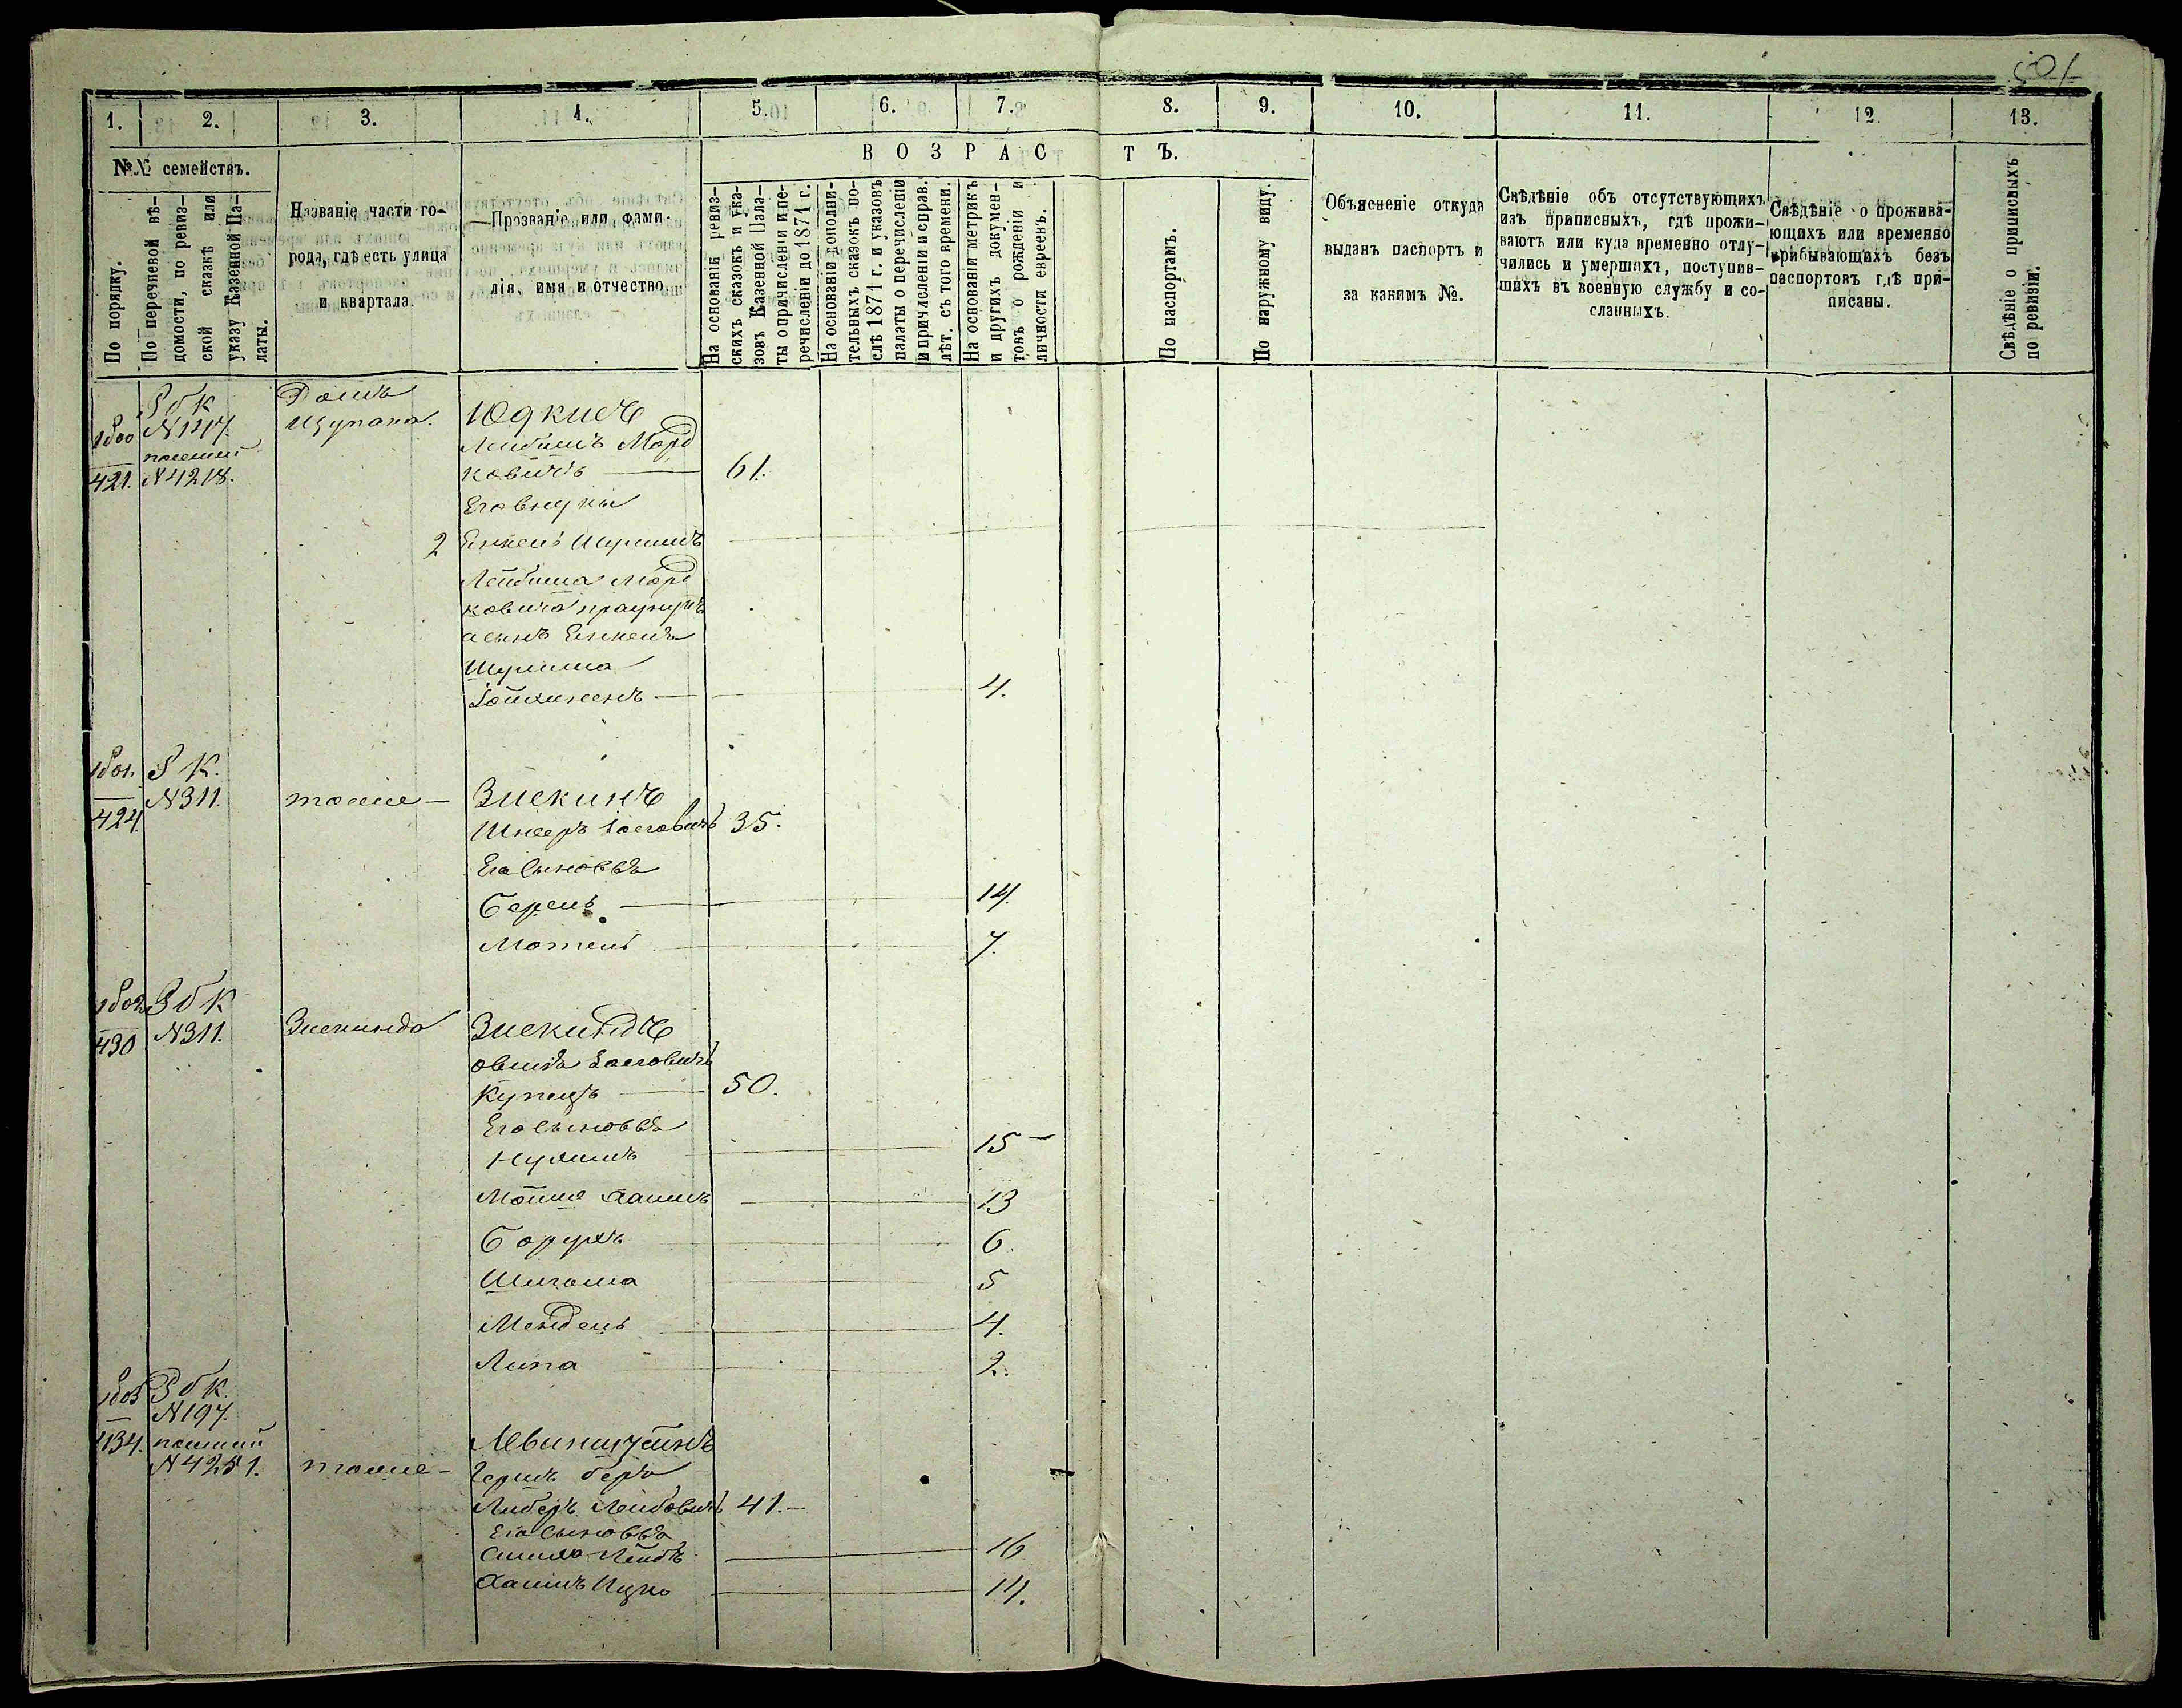 501
1. 2. 3. 4. 5. 6. 7. 8. 9. 10. 11. 12. 13.
№№ семействъ.
По порядку.
По перечневой вѣ-
домости, по ревиз-
ской сказкѣ или
указу Казенной Па-
латы.
Названіе части го-
рода, гдѣ есть улица
и квартала.
Прозваніе или фами-
лія, имя и отчество.
ВОЗРАСТЪ.
На основаніи ревиз-
скихъ сказокъ и ука-
зовъ Казенной Пала-
ты о причисленіи и пе-
речисленіи до 1871 г.
На основаніи дополни-
тельныхъ сказокъ по-
слѣ 1871 г. и указовъ
палаты о перечисленіи
и причисленіи и справ.
лѣт. съ того времени.
На основаніи метрикъ
и другихъ докумен-
товъ о рожденіи и
личности евреевъ.
По паспортамъ.
По наружному виду.
Объясненіе откуда
выданъ паспортъ и
за какимъ №.
Свѣдѣніе объ отсутствующихъ
изъ приписныхъ, гдѣ прожи-
ваютъ или куда временно отлу-
чились и умершихъ, поступив-
шихъ въ военную службу и со-
сланныхъ.
Свѣдѣніе о прожива-
ющихъ или временно
прибывающихъ безъ
паспортовъ гдѣ при-
писаны.
Свѣдѣніе о приписныхъ
по ревизіи.
Домъ
Юдкисъ
Лейбишъ Морд
ковичъ — 61.
421. N 4218.
Его внуки
2 Енкель Шулимъ
Лейбиша Морд
ковича праунукъ
а сынъ Енкеля
Шулима
4.
N 311. тоже — Зискинъ
424
Шнееръ Іосеовичъ 35.
Его Сыновья
Берель — 14.
Мотель — 7.
N 311. Зискинда Зискиндъ
430
Овшія Іосеовичъ
Купецъ — 50.
Его сыновья
Нухимъ — 15
Мойше Хаимъ — 13
Борухъ — 6.
5
Мендель — 4.
Липа — 2.
N 197.
434.
N 4251. тоже — Гершъ беръ
Либеръ Лейбовичъ 41.
Его Сыновья
Симха Лейбъ — 16
Хаимъ Ицко — 14.